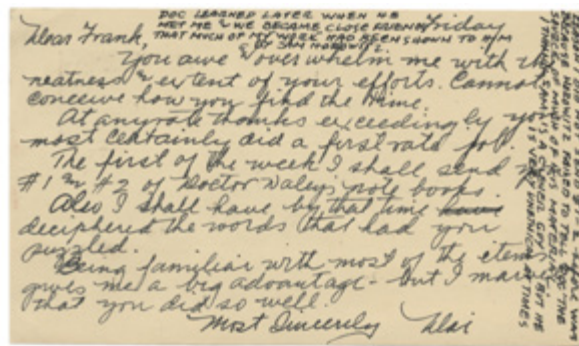 DOC LEARNED LATER WHEN HE
MET ME & WE BECAME CLOSE FRIENDS
THAT MUCH OF MY WORK HAD BEEN SHOWN TO HIM
BY SAM HOROWITZ.
Friday
Dear Frank,
You awe & overwhelm me with the
neatness & extent of your efforts. Cannot
conceive how you find the time.
At anyrate thanks exceedingly you
most certainly did a first rate job.
The first of the week I shall send
#1 & #2 of Doctor Daley's note books.
Also I shall have by that time have
deciphered the words that had you
puzzled.
Being familiar with most of the items
gives me a big advantage - but I marvel
that you did so well.
Most Sincerely
BECAUSE HOROWITZ FAILED TO TELL DOC THE
SOURCE OF MUCH OF HIS MATERIAL.
I THINK SAM IS A CLEVER GUY - BUT HE
IS VERY
AT TIMES